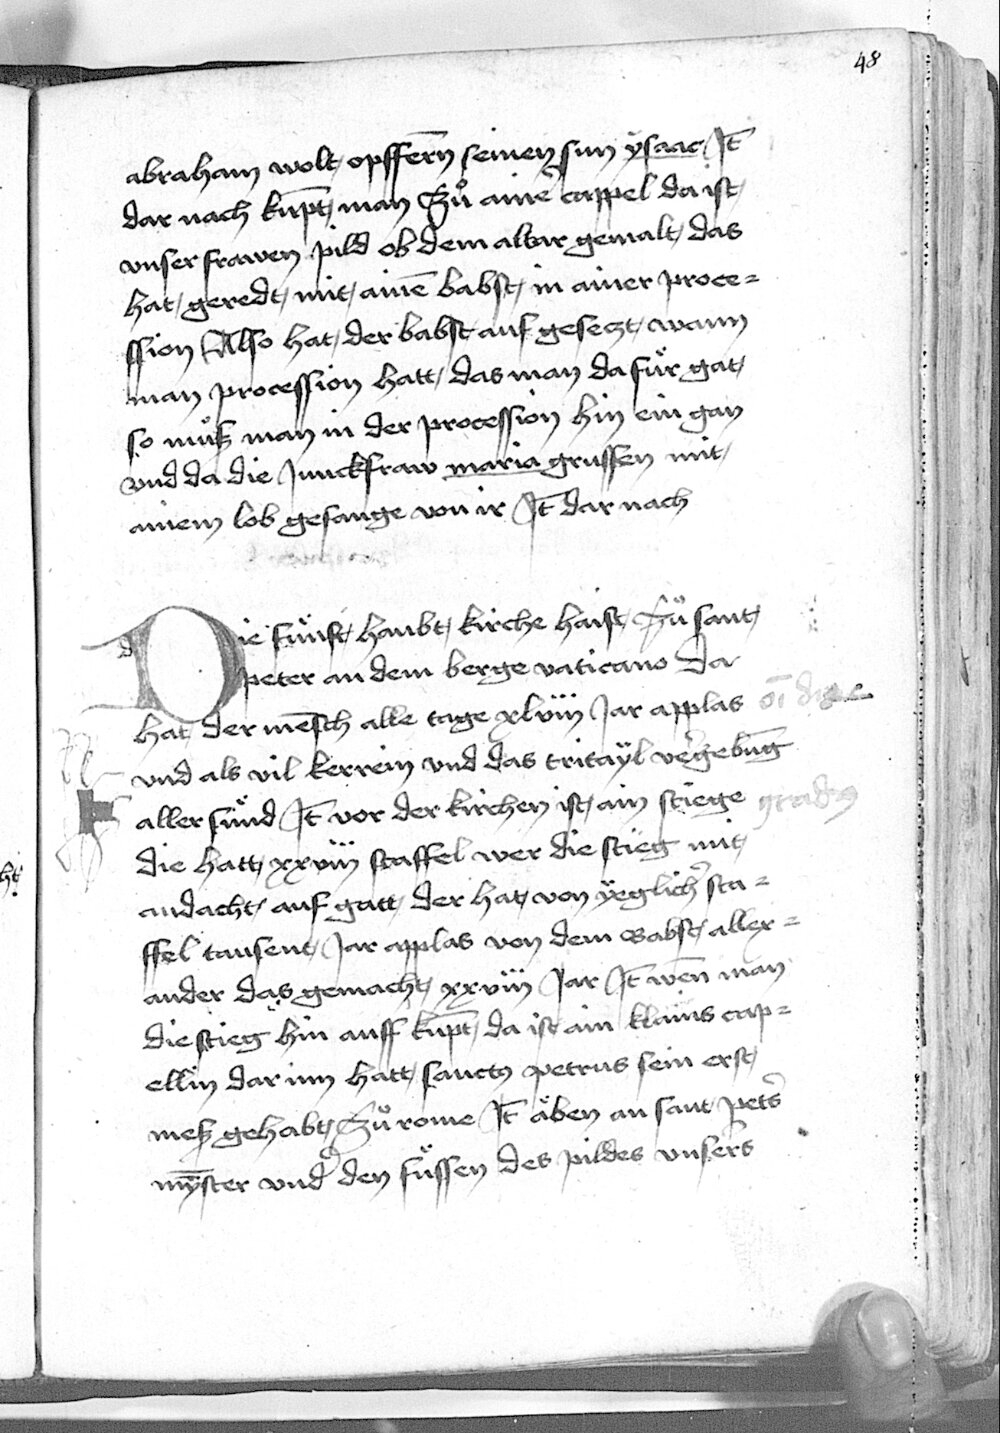 48
abraham wolt opffern̄ seinen sun ysaac It̄
dar nach kup̄t man Zů ainē cappel da ist
vnser frawen pild ob dem altar gemalt das
hat geredt mit ainē babst in ainer proce=
ssion Also hat der babst auf geseczt wann
man procession hatt das man da für gat
so můß man in der procession hin ein gan
vnd da die Junckfraw maria grussen mit
ainem lob gesange von ir It̄ dar nach
Die fünft haubt kirche haist Zů sant
peter an dem berge vaticano Da
hat der mēsch alle tage xlviii Jar applas
vnd als vil kerrein vnd das tritayl vergebūg
aller sünd It̄ vor der kirchen ist ain stiege gradus
die hatt xxviii staffel wer die stieg mit
andacht auf gatt der hat von yeglicher sta=
ffel tausent Jar applas von dem Babst allex=
ander das gemacht xxviii Jar It̄ wen̄ man
die stieg hin auff kup̄t da ist ain klains cap=
ellin dar inn hatt sanctus petrus sein erst
meß gehabt Zů rome It̄ äben an sant peters
mӯster vnder den füssen des pildes vnsers